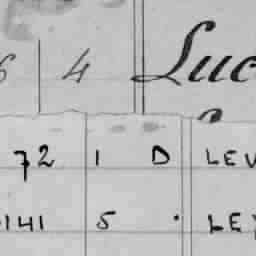 6 4 Luc
72 1 D LEV
141 5 . LEY